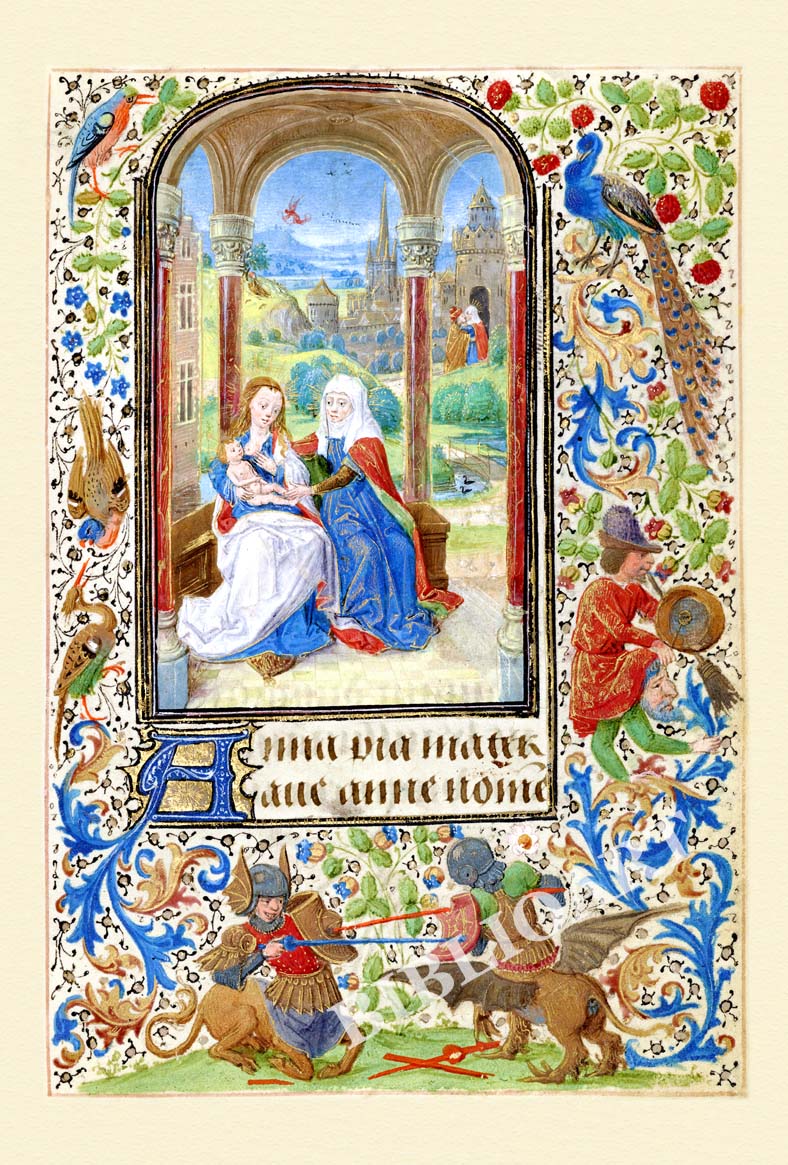 Anna pia mater
aue anne nomē
BIBLIO ART